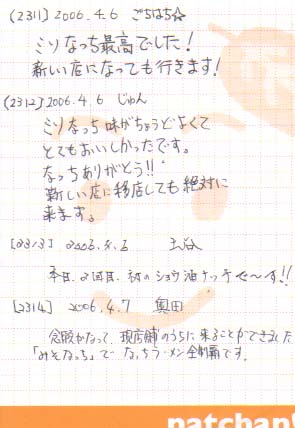 (2311) 2006.4.6 ごちはち☆
ミソなっち最高でした!
新しい店になっても行きます!
(2312) 2006.4.6 じゅん
ミソなっち味がちょうどよくて
とてもおいしかったです。
なっちありがとう!!
新しい店に移店しても絶対に
来ます。
[2313] 2006.4.6
本日、2回目、初のショウ油ナッチで〜す!!
[2314] 2006.4.7 奥田
念願かなって、現店舗のうちに来ることができました
「みそなっち」で なっちラーメン全制覇です。
patchan!